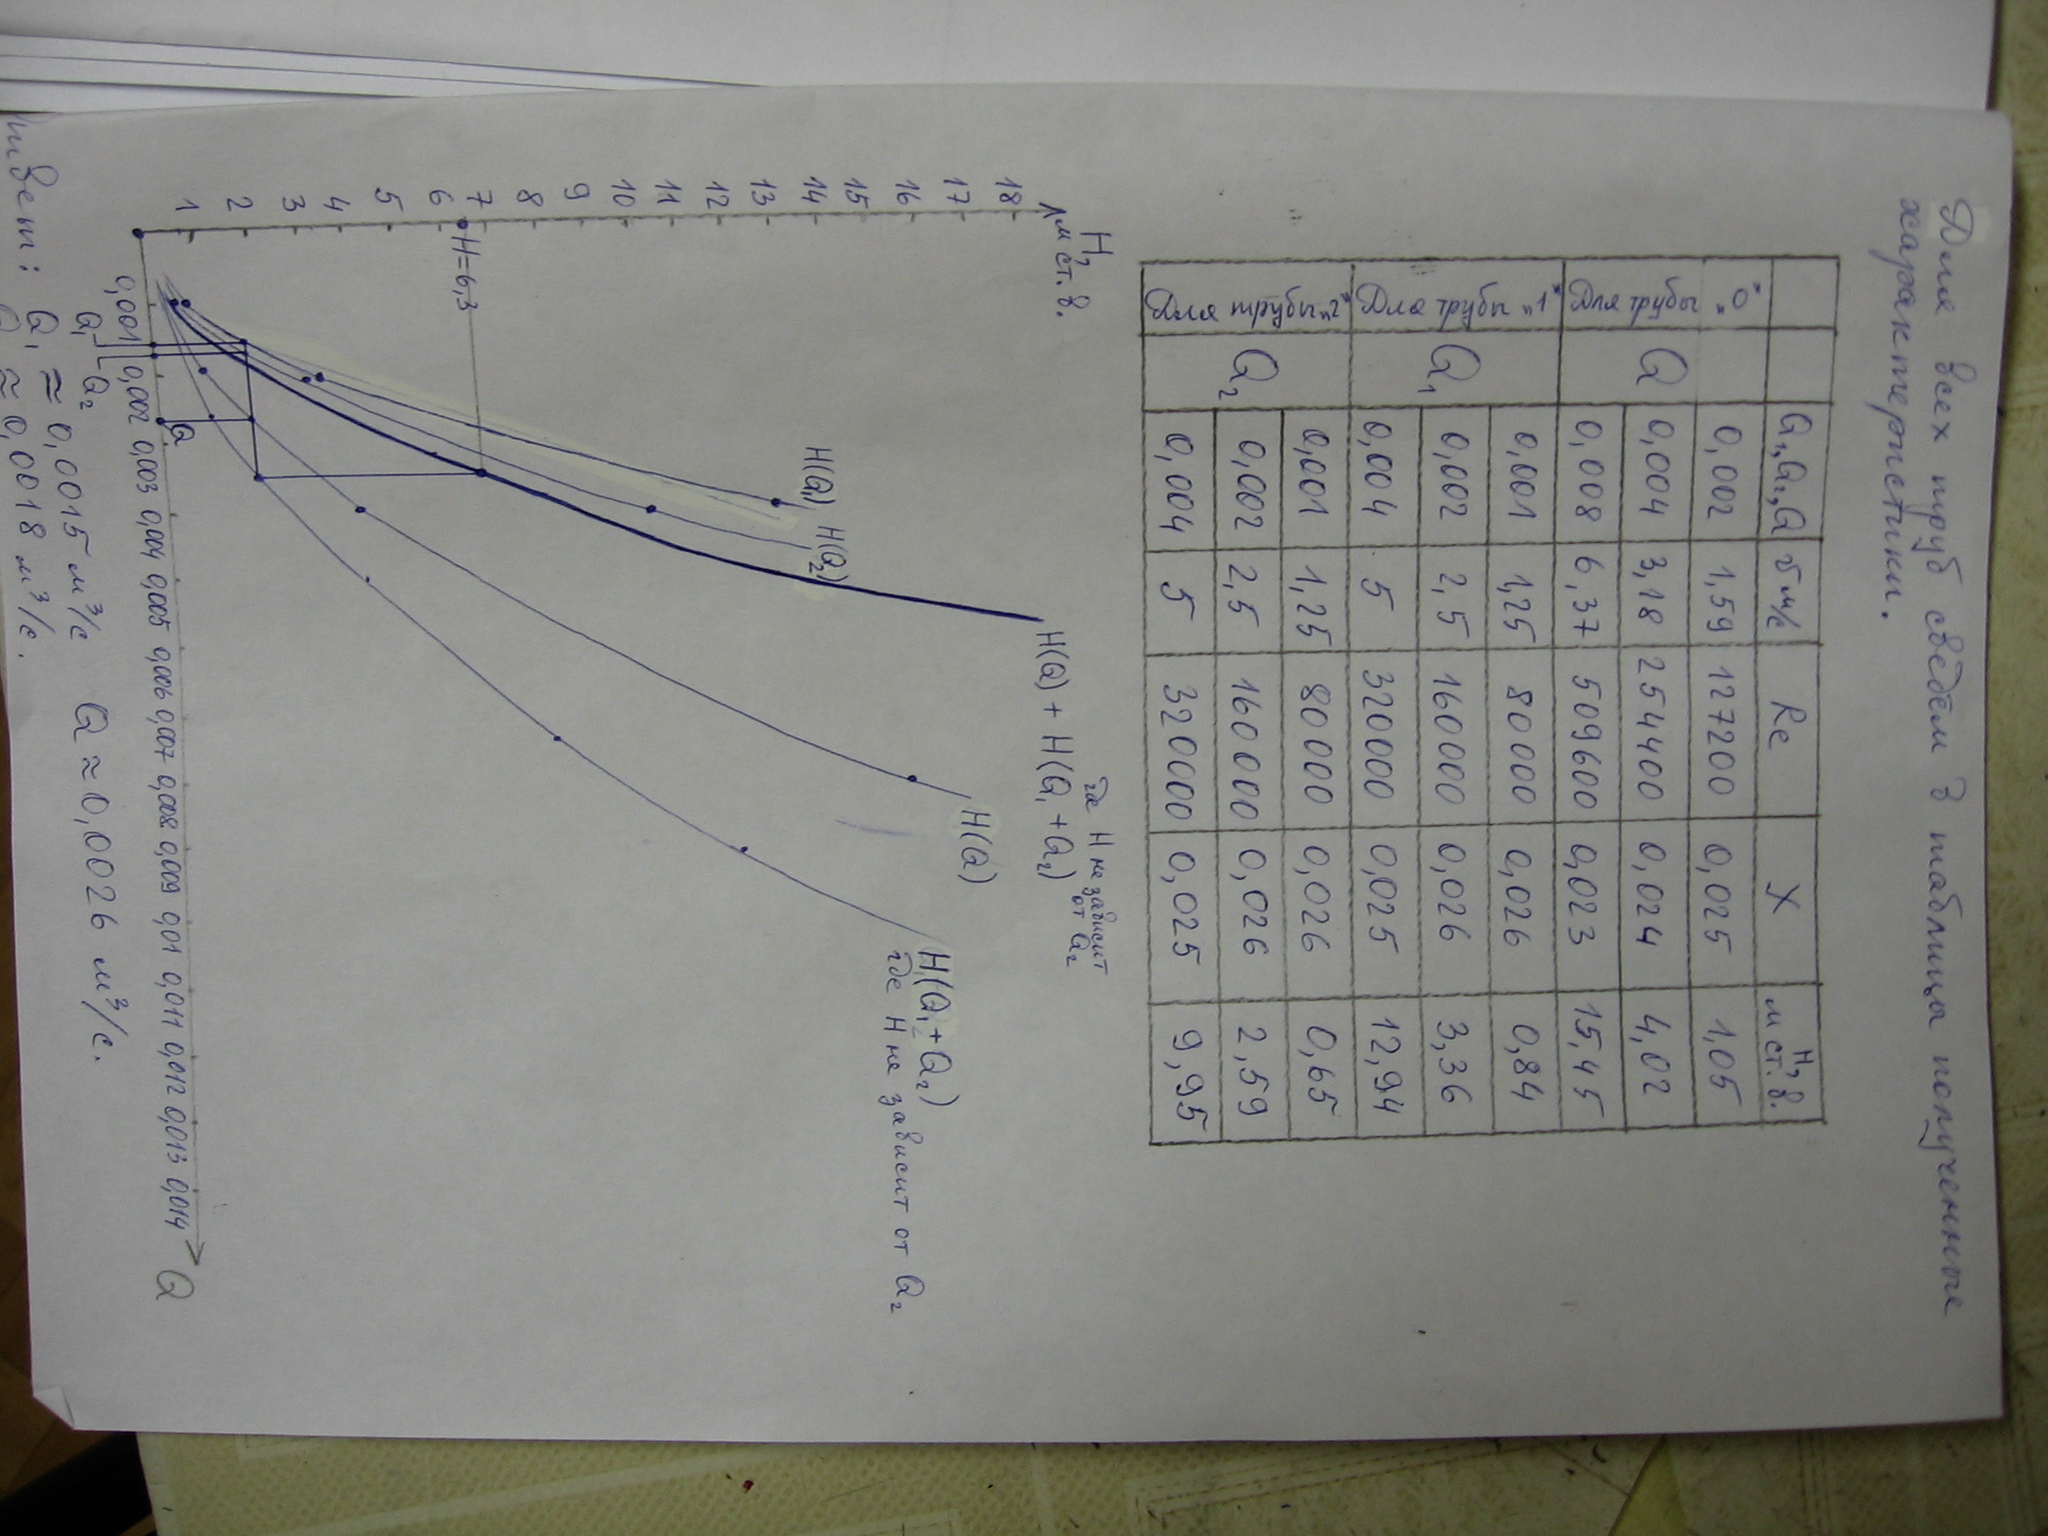 Для всех труб сведём в таблицы полученные
характеристики.
Q₁,Q₂,Q V м/с Re λ H, м ст. в.
Для трубы „0" Q 0,002 1,59 127200 0,025 1,05
0,004 3,18 254400 0,024 4,02
0,008 6,37 509600 0,023 15,45
Для трубы „1" Q₁ 0,001 1,25 80000 0,026 0,84
0,002 2,5 160000 0,026 3,36
0,004 5 320000 0,025 12,94
Для трубы „2" Q₂ 0,001 1,25 80000 0,026 0,65
0,002 2,5 160000 0,026 2,59
0,004 5 320000 0,025 9,95
H,
м ст. в.
где H не зависит
от Q₂
H(Q) + H(Q₁ + Q₂)
18
17
16
15
14
13
12
11
10
9
8
7
6
5
4
3
2
1
H(Q)
H(Q₁+Q₂)
где H не зависит от Q₂
H(Q₁) H(Q₂)
H=6,3
Q
0,001 0,002 0,003 0,004 0,005 0,006 0,007 0,008 0,009 0,01 0,011 0,012 0,013 0,014 Q
Q₁ Q₂
твет: Q₁ ≈ 0,0015 м³/с Q ≈ 0,0026 м³/с.
≈ 0,0018 м³/с.